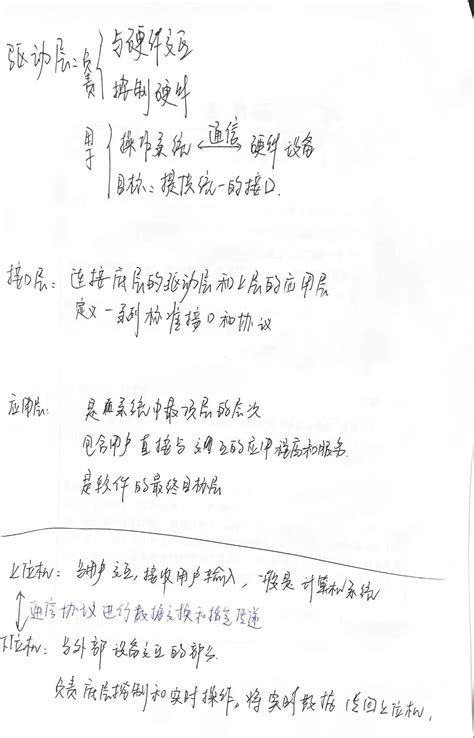 驱动层：负责 与硬件交互
控制硬件
用于 操作系统 通信 硬件设备
目标：提供统一的接口.
接口层：连接底层的驱动层和上层的应用层
定义一系列标准接口和协议
应用层：是系统中最顶层的层次
包含用户直接与交互的应用程序和服务.
是软件的最终目标层
上位机：与用户交互，接收用户输入，一般是计算机系统
通信协议进行数据交换和指令传递
下位机：与外部设备交互的部分.
负责底层控制和实时操作，将实时数据传回上位机.